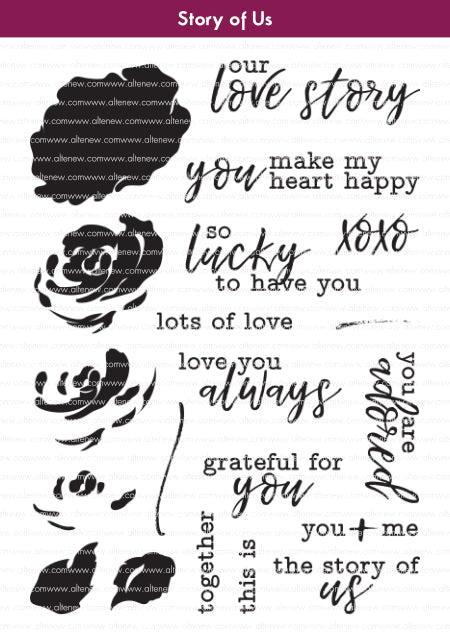 Story of Us
our
love story
you make my
heart happy
so
lucky
to have you
xoxo
lots of love
love you
always
you are
adored
grateful for
you
together
this is
you + me
the story of
us
www.altenew.com